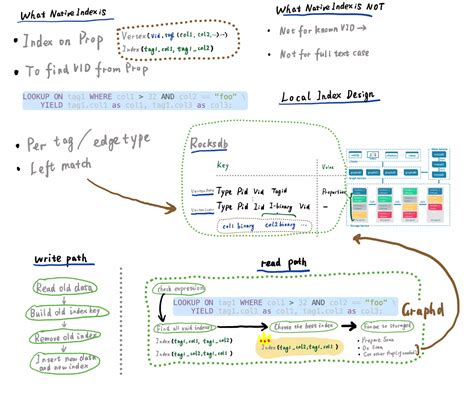 What Native Index is
Index on Prop
Vertex(Vid, tag(col1, col2, ...)
Index(tag1, col1, col2)
To find VID from Prop
LOOKUP ON tag1 WHERE col1 > 32 AND col2 == "foo" \
YIELD tag1.col1 as col1, tag1.col3 as col3;
Per tag/edgetype
Left match
What Native Index is NOT
Not for known VID →
Not for full text case
Local Index Design
Rocksdb
Key
Value
Vertex Data Type Pid Vid Tagid
Properties
Vertex Index Type Pid Iid I-binary Vid
-
col1 binary col2 binary ...
write path
Read old data
Build old index key
Remove old index
Insert new data
and new index
read path
check expression
LOOKUP ON tag1 WHERE col1 > 32 AND col2 == "foo" \
YIELD tag1.col1 as col1, tag1.col3 as col3;
Graphd
Find all valid indexes
Choose the best index
Index(tag1, col1, col2)
Index(tag1, col2, col1)
Prepare Scan
Do Scan